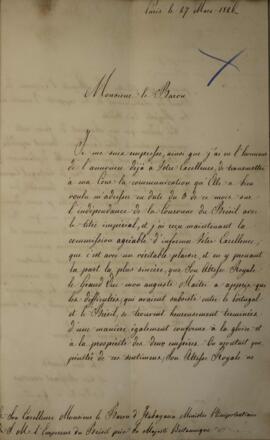 Paris le 27 Mars 1826
Monsieur le Baron
Je me suis empressé, ainsi que j'ai eu l'honneur
de l'annoncer déjà à Votre Excellence, de transmettre
à ma Cour la communication qu'Elle a bien
voulu m'adresser en date du 3 de ce mois sur
l'indépendance de la Couronne du Brésil avec
le titre impérial, et j'ai reçu maintenant la
commission agréable d'informer Votre Excellence,
que c'est avec un véritable plaisir, et en y prenant
la part la plus sincère, que Son Altesse Royale
le Grand Duc mon auguste Maître a appris que
les difficultés, qui avaient subsisté entre le Portugal
et le Brésil, se trouvent heureusement terminées
d'une manière également conforme à la gloire et
à la prospérité des deux empires. En ajoutant que
pénétré de ces sentimens, Son Altesse Royale ne
Son Excellence Monsieur le Baron d'Itabayana Ministre Plénipotentiaire
S. M. l'Empereur du Brésil près Sa Majesté Britannique